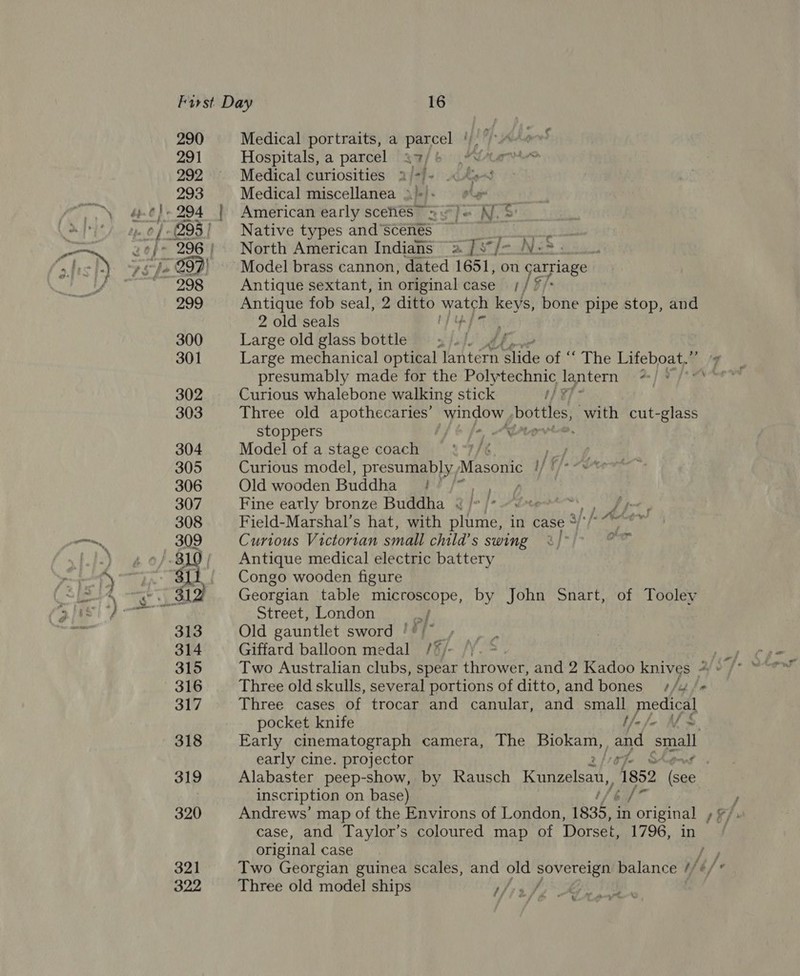 First Day 16
290 Medical portraits, a parcel
291 Hospitals, a parcel
292 Medical curiosities
293 Medical miscellanea
294 American early scenes N.S.
295 Native types and scenes
296 North American Indians N.S.
297 Model brass cannon, dated 1651, on carriage
298 Antique sextant, in original case
299 Antique fob seal, 2 ditto watch keys, bone pipe stop, and
2 old seals
300 Large old glass bottle
301 Large mechanical optical lantern slide of “ The Lifeboat.”
presumably made for the Polytechnic lantern
302 Curious whalebone walking stick
303 Three old apothecaries’ window bottles, with cut-glass
stoppers
304 Model of a stage coach
305 Curious model, presumably Masonic
306 Old wooden Buddha
307 Fine early bronze Buddha
308 Field-Marshal’s hat, with plume, in case
309 Curious Victorian small child’s swing
310 Antique medical electric battery
311 Congo wooden figure
312 Georgian table microscope, by John Snart, of Tooley
Street, London
313 Old gauntlet sword
314 Giffard balloon medal
315 Two Australian clubs, spear thrower, and 2 Kadoo knives
316 Three old skulls, several portions of ditto, and bones
317 Three cases of trocar and canular, and small medical
pocket knife
318 Early cinematograph camera, The Biokam, and small
early cine. projector
319 Alabaster peep-show, by Rausch Kunzelsau, 1852 (see
inscription on base)
320 Andrews’ map of the Environs of London, 1835, in original
case, and Taylor’s coloured map of Dorset, 1796, in
original case
321 Two Georgian guinea scales, and old sovereign balance
322 Three old model ships